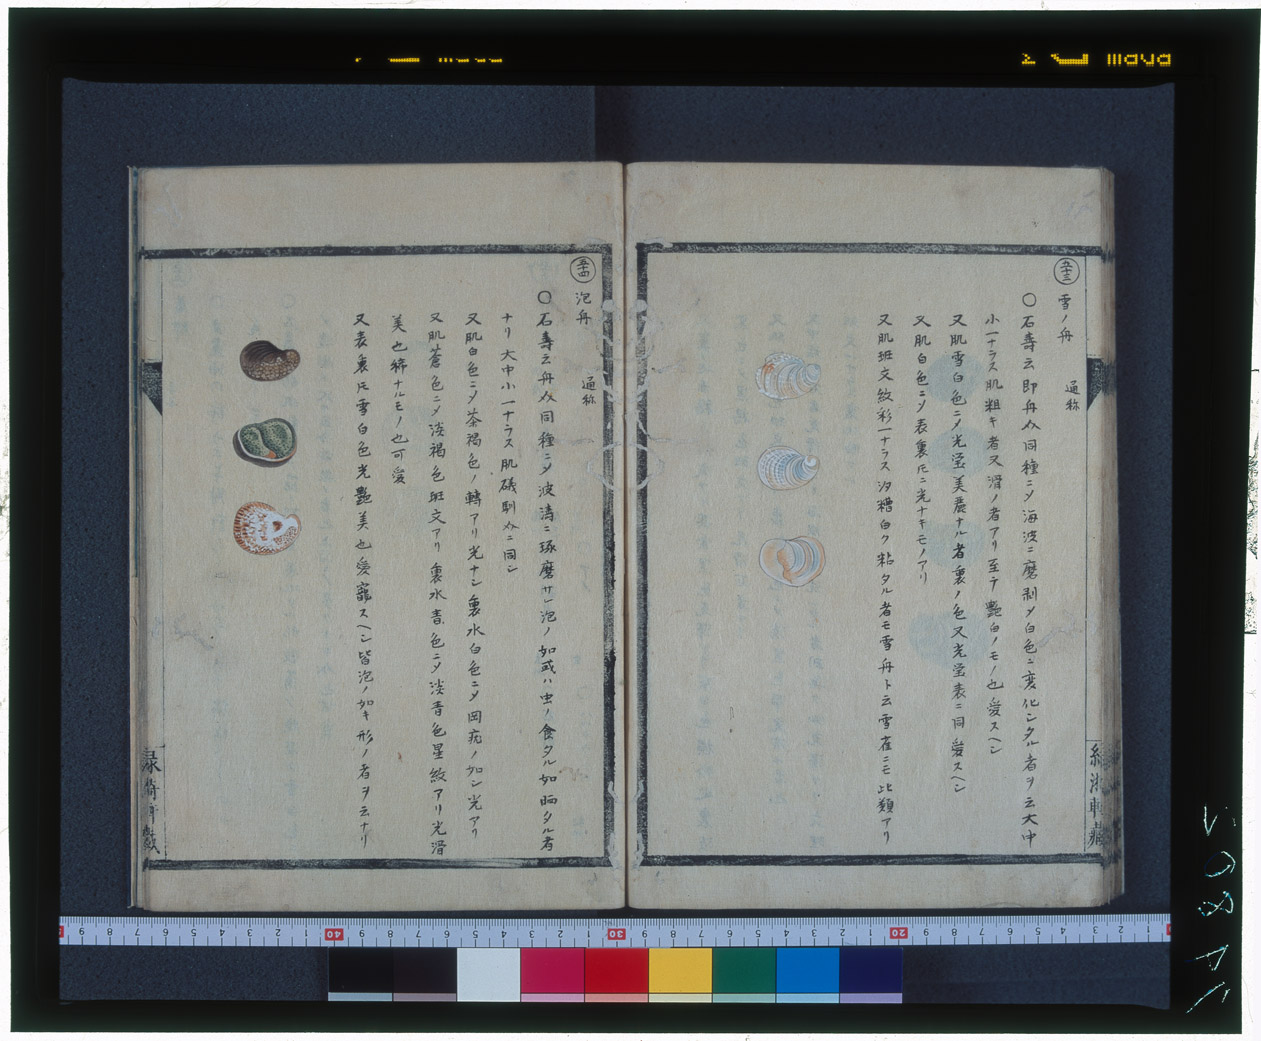 五十三
雪ノ舟
通称
〇石壽云即舟介同種ニメ海波ニ磨剥メ白色ニ変化シタル者ヲ云大中
小一ナラス肌粗キ者又滑ノ者アリ至テ艶白ノモノ也愛スヘシ
又肌雪白色ニメ光瑩美麗ナル者裏ノ色又光瑩表ニ同愛スヘシ
又肌白色ニメ表裏𪜈ニ光ナキモノアリ
又肌斑文紋彩一ナラス汐糟白ク粘タル者モ雪舟ト云雪雀ニモ此類アリ
五十四
泡舟
通称
〇石壽云舟介同種ニメ波濤ニ琢磨サレ泡ノ如或ハ虫ノ食タル如晒タル者
ナリ大中小一ナラス肌磯馴介ニ同シ
又肌白色ニメ茶褐色ノ轉アリ光ナシ裏水白色ニメ岡ノ如シ光アリ
又肌蒼色ニメ淡褐色斑文アリ裏水青色ニメ淡青色星紋アリ光滑
美也稀ナルモノ也可愛
又表裏𪜈雪白色光艶美也愛寵スヘシ皆泡ノ如キ形ノ者ヲ云ナリ
40
30
20